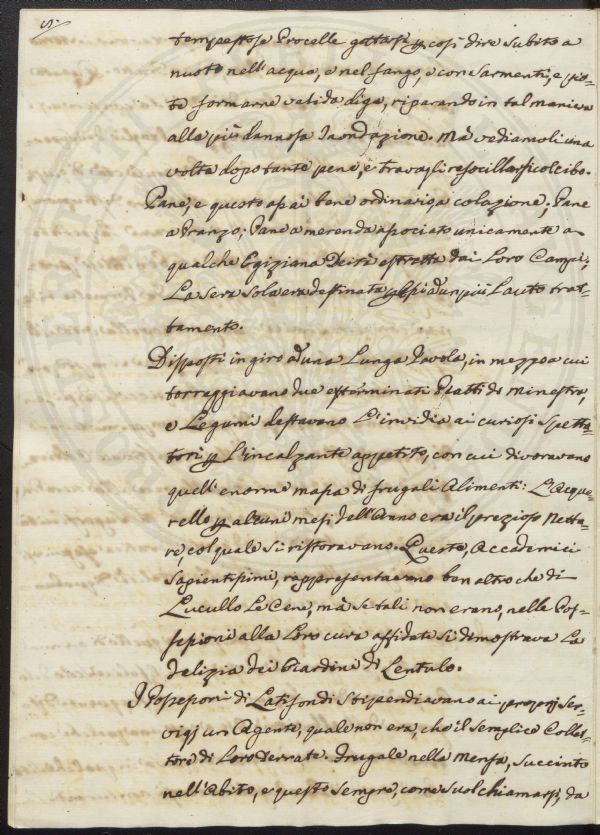 5.
tempestose Procelle gettarsi p così dire subito a
nuoto nell'acqua, e nel fango, e con sarmenti, e pio-
te formarne valida diga, riparando in tal maniera
alla più dannosa Inondazione. Mà vediamoli una
volta dopo tante pene, e travagli refocillarsi col cibo.
Pane, e questo assai bene ordinario, a colazione; Pane
a Pranzo; Pane a merenda associato unicamente a
qualche Egiziana Deità estratta dai Loro Campi;
La sera sola era destinata p essi ad un più Lauto trat-
tamento.
Disposti in giro ad una Lunga Tavola, in mezzo a cui
torreggiavano due esterminati Piatti di Minestra,
e Legumi destavano L'invidia ai curiosi Spetta-
tori p L'incalzante appetito, con cui divoravano
quell'enorme massa di frugali Alimenti: L'Acque-
rello p alcuni mesi dell'Anno era il prezioso Netta-
re, col quale si ristoravano. Queste, Accademici
Sapientissimi, rappresentavano ben altro che di
Lucullo Le Cene, mà se tali non erano, nelle Pos-
sessioni alla Loro cura affidate si dimostrava La
delizia dei Giardini di Lentulo.
I Possessori di Latifondi stipendiavano ai proprj Ser-
vigj un Agente, quale non era, che il semplice Collet-
tore di Loro Derrate. Frugale nella Mensa, Succinto
nell'Abito, e questo sempre, come suol chiamarsi, da